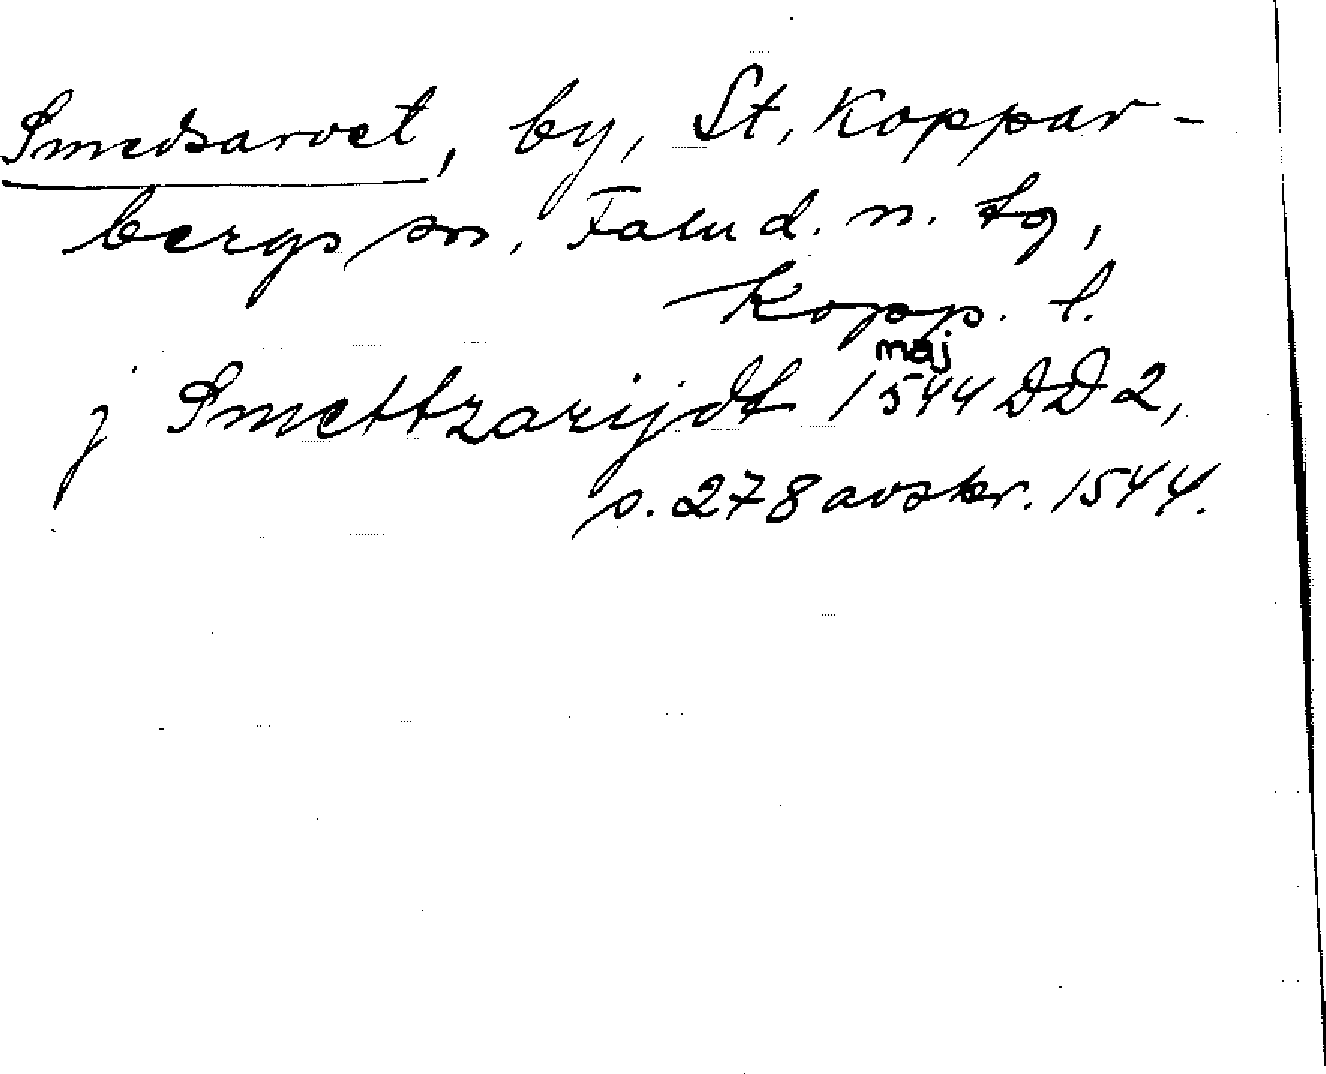 Smedsarvet, by, St. Koppar-
bergs sn, Falu d. n. tg,
Kopp. l.
maj
j Smettzarijdt 1544 DD 2,
s. 278 avskr. 1544.